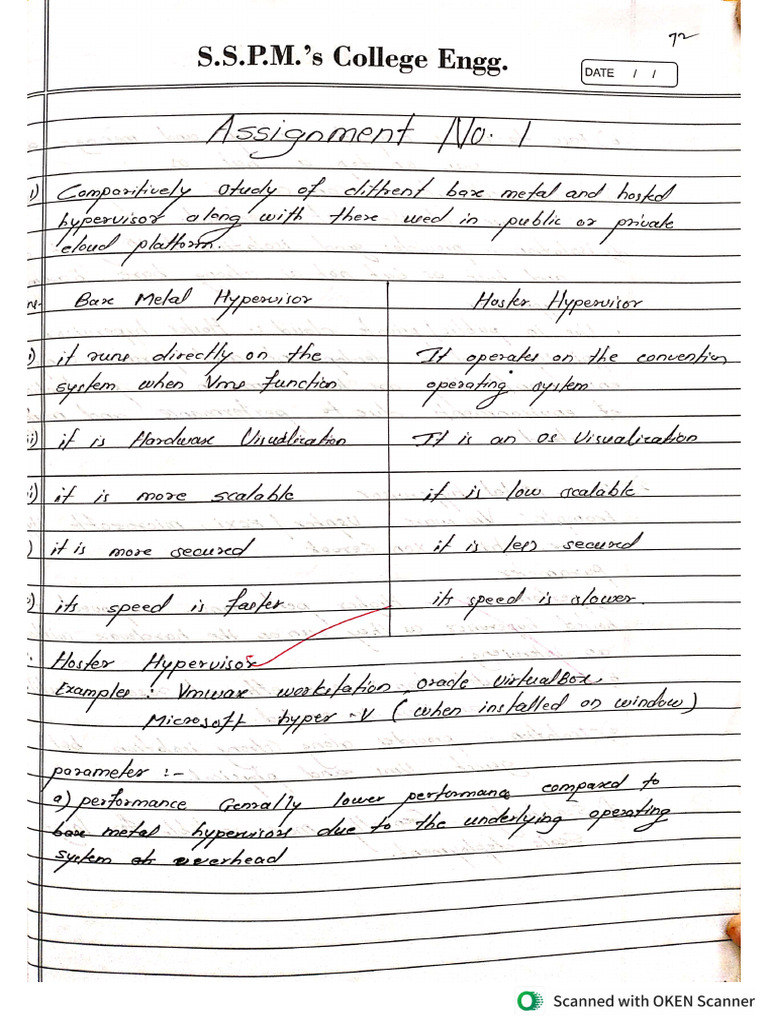 72
S.S.P.M.'s College Engg.
DATE / /
Assignment No. 1
1) Comparitively study of diffrent bare metal and hosted
hypervisor along with there used in public or private
cloud platform.
Bare Metal Hypervisor Hoster Hypervisor
i) it runs directly on the It operates on the convention
system when Vms function operating system
ii) it is Hardware Visualization It is an os Visualization
it is more scalable it is low scalable
it is more secured it is less secured
its speed is faster its speed is slower.
Hoster Hypervisor
Examples : Vmware workstation, oracle virtualBox,
Microsoft hyper -V ( when installed on window)
parameter :-
a) performance Genrally lower performance compared to
bare metal hypervisors due to the underlying operating
system overhead
Scanned with OKEN Scanner